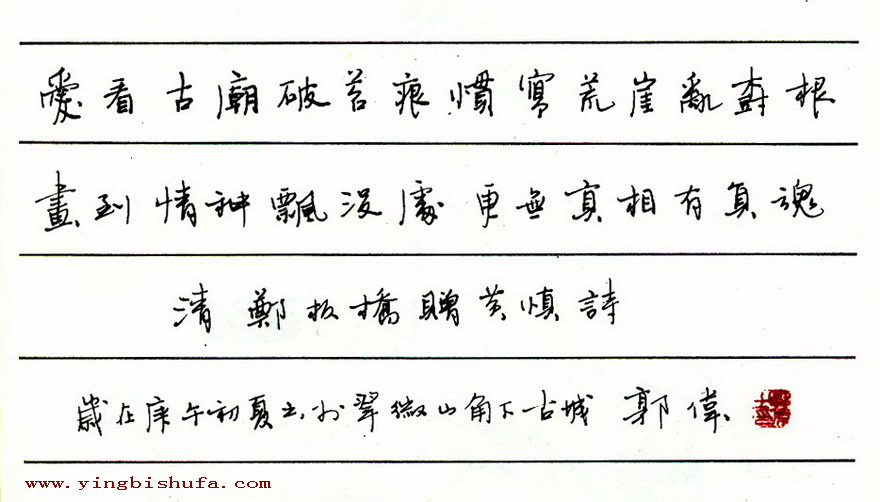 愛看古廟破苔痕慣寫荒崖亂樹根
畫到情神飄沒處更無真相有真魂
清鄭板橋贈黃慎詩
歲在庚午初夏書於翠微山角下古城 郭偉
www.yingbishufa.com